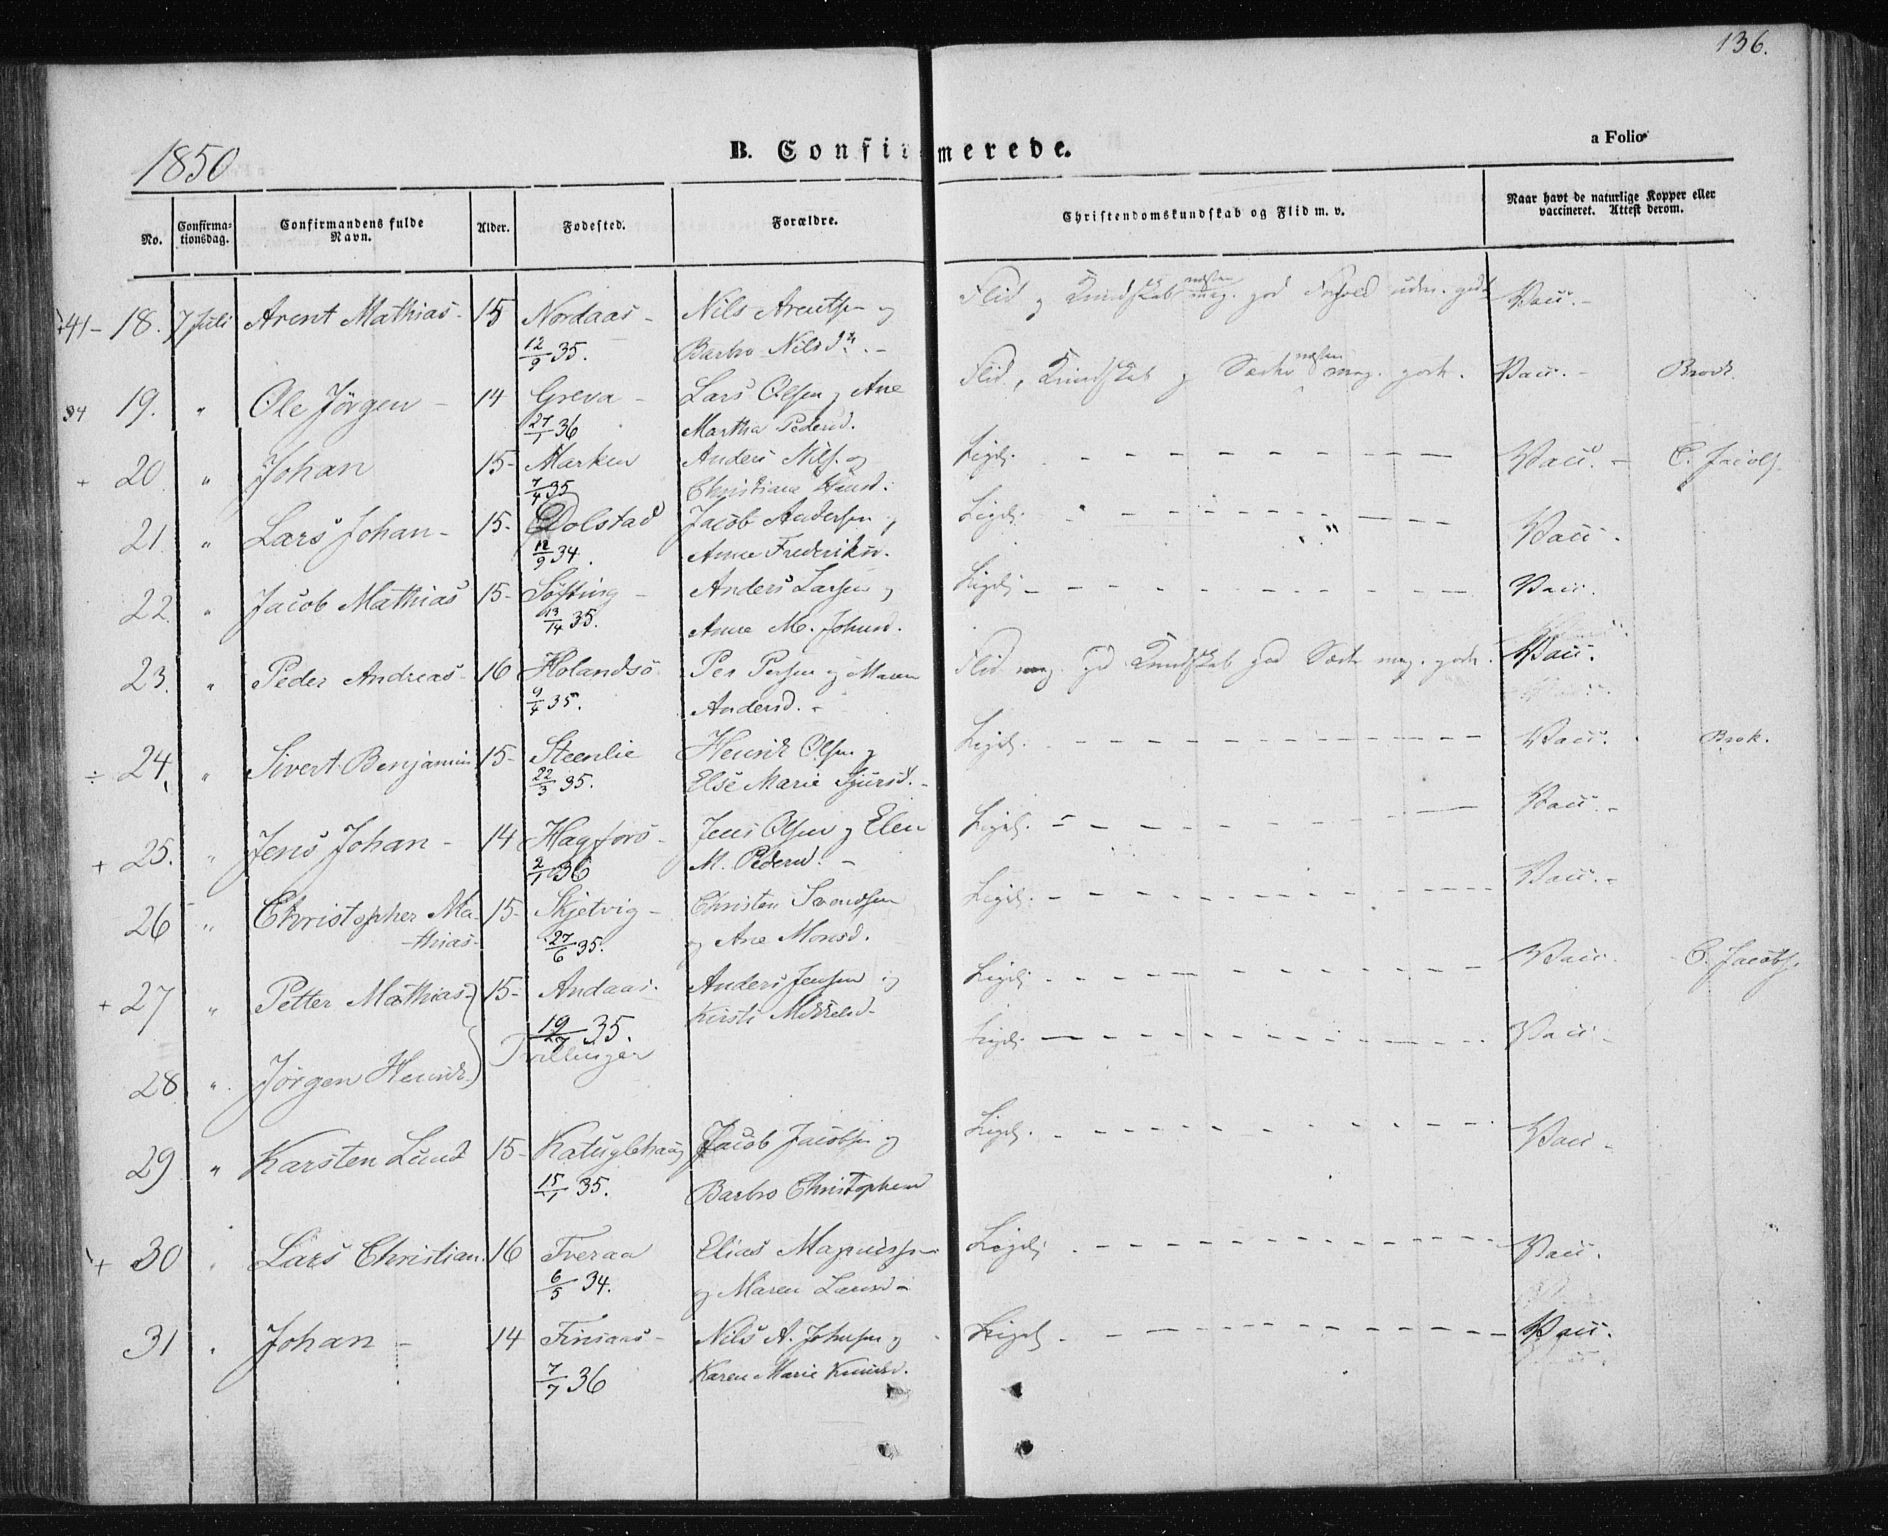 136.
1850
B. Confirmerede.
a Folio
No.
Confirma-
tionsdag.
Confirmandens fulde
Navn.
Alder.
Fodested.
Forældre.
Christendomskundskab og Flid m. v.
Naar havt de naturlige Kopper eller
vaccineret. Attest derom.
41- 18. 7 Juli Arent Mathias- 15 Nordaas - Nils Arentsen og Flid og Kundskab næsten meg. god Forhold udm. godt Vacc. -
12/9 35. Barbro Nilsd. -
34 19. " Ole Jörgen - 14 Greva - Lars Olsen og Ane Flid, Kundskab og Sæder næsten meg. gode. Vacc. - Brock.
27/1 36 Martha Pedersd.
+ 20 " Johan 15- Marken Anders Nils. og Ligel. - - - Vacc. - C. Jacobs.
7/4 35 Christiana Hansd.
21. " Lars Johan - 15- Dolstad Jacob Andersen og Ligel. - - - Vacc.
12/9 34. Anne Frederiksd.
22 " Jacob Mathias 15- Söfting - Anders Larsen og Ligel. - - - Vacc.
13/14 35. Anne M. Johansd.
23. " Peder Andreas- 16 Holandsö Per Persen og Maren Flid meg. god Kundskab god Sæder meg. gode. Vacc.
9/4 35. Andersd. -
÷ 24, " Sivert Benjamin 15- Steenlie Henrik Olsen og Ligel. - - - Vacc. Brok.
22/3 35. Else Marie Sjursd. -
+ 25. " Jens Johan - 14 Hagfors - Jens Olsen og Elen Ligel. - - - Vacc. -
2/1 36 M. Pedersd. -
26 " Christopher Ma- 15- Skjetvig - Christen Svendsen Ligel. - - - Vacc. -
-thias- 27/6 35. og Ane Monsd.
+ 27 " Petter Mathias- 15- Andaas. Anders Jensen og Ligel. - - - Vacc. - C. Jacobs.
19/7 35. Kirsti Mikkelsd.
28 " Jörgen Henrik Tvillinger Ligel. - - - Vacc -
29 " Karsten Lund 15- Katuglehaug Jacob Jacobsen og Ligel. - - - Vacc -
15/1 35. Barbro Christophersd
+ 30 " Lars Christian. 16 Tveraa Elias Magnussen Ligel. - - - Vacc.
6/5 34. og Maren Larsd -
31 " Johan - 14 Finsaas - Nils A. Johnsen og Ligel. - - - Vacc.
7/7 36 Karen Marie Knudsd.